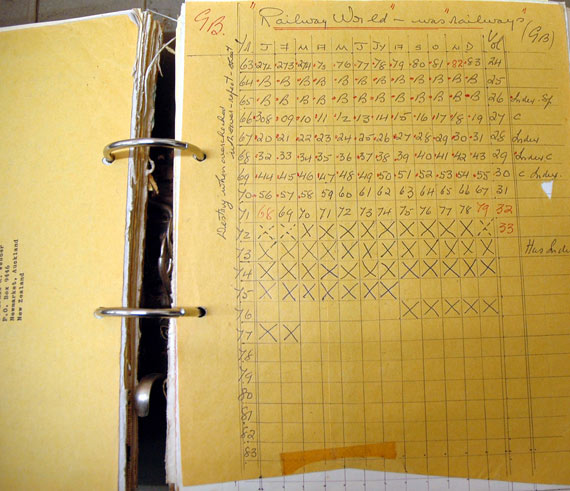 GB.
"Railway World" - was "Railways" (GB)
Yr J F M A M J Jy A S O N D Vol
63 272 273 274 75 76 77 78 79 80 81 82 83 24
64 B B B B B B B B B B B B 25
65 B B B B B B B B B B B B 26 Index
66 308 09 10 11 12 13 14 15 16 17 18 19 27 C
67 20 21 22 23 24 25 26 27 28 29 30 31 28 Index
68 32 33 34 35 36 37 38 39 40 41 42 43 29 Index C
69 44 45 46 47 48 49 50 51 52 53 54 55 30 C Index
70 56 57 58 59 60 61 62 63 64 65 66 67 31
71 68 69 70 71 72 73 74 75 76 77 78 79 32
72 X X X X X X X X X X X X 33
73 X X X X X X X X X X X X Has Inde
74 X X X X X X X X X X X X
75 X X X X X X X
76 X X X X
77 X X
78
79
80
81
82
83
Destroy when
P.O. Box
Newmarket, Auckland
New Zealand